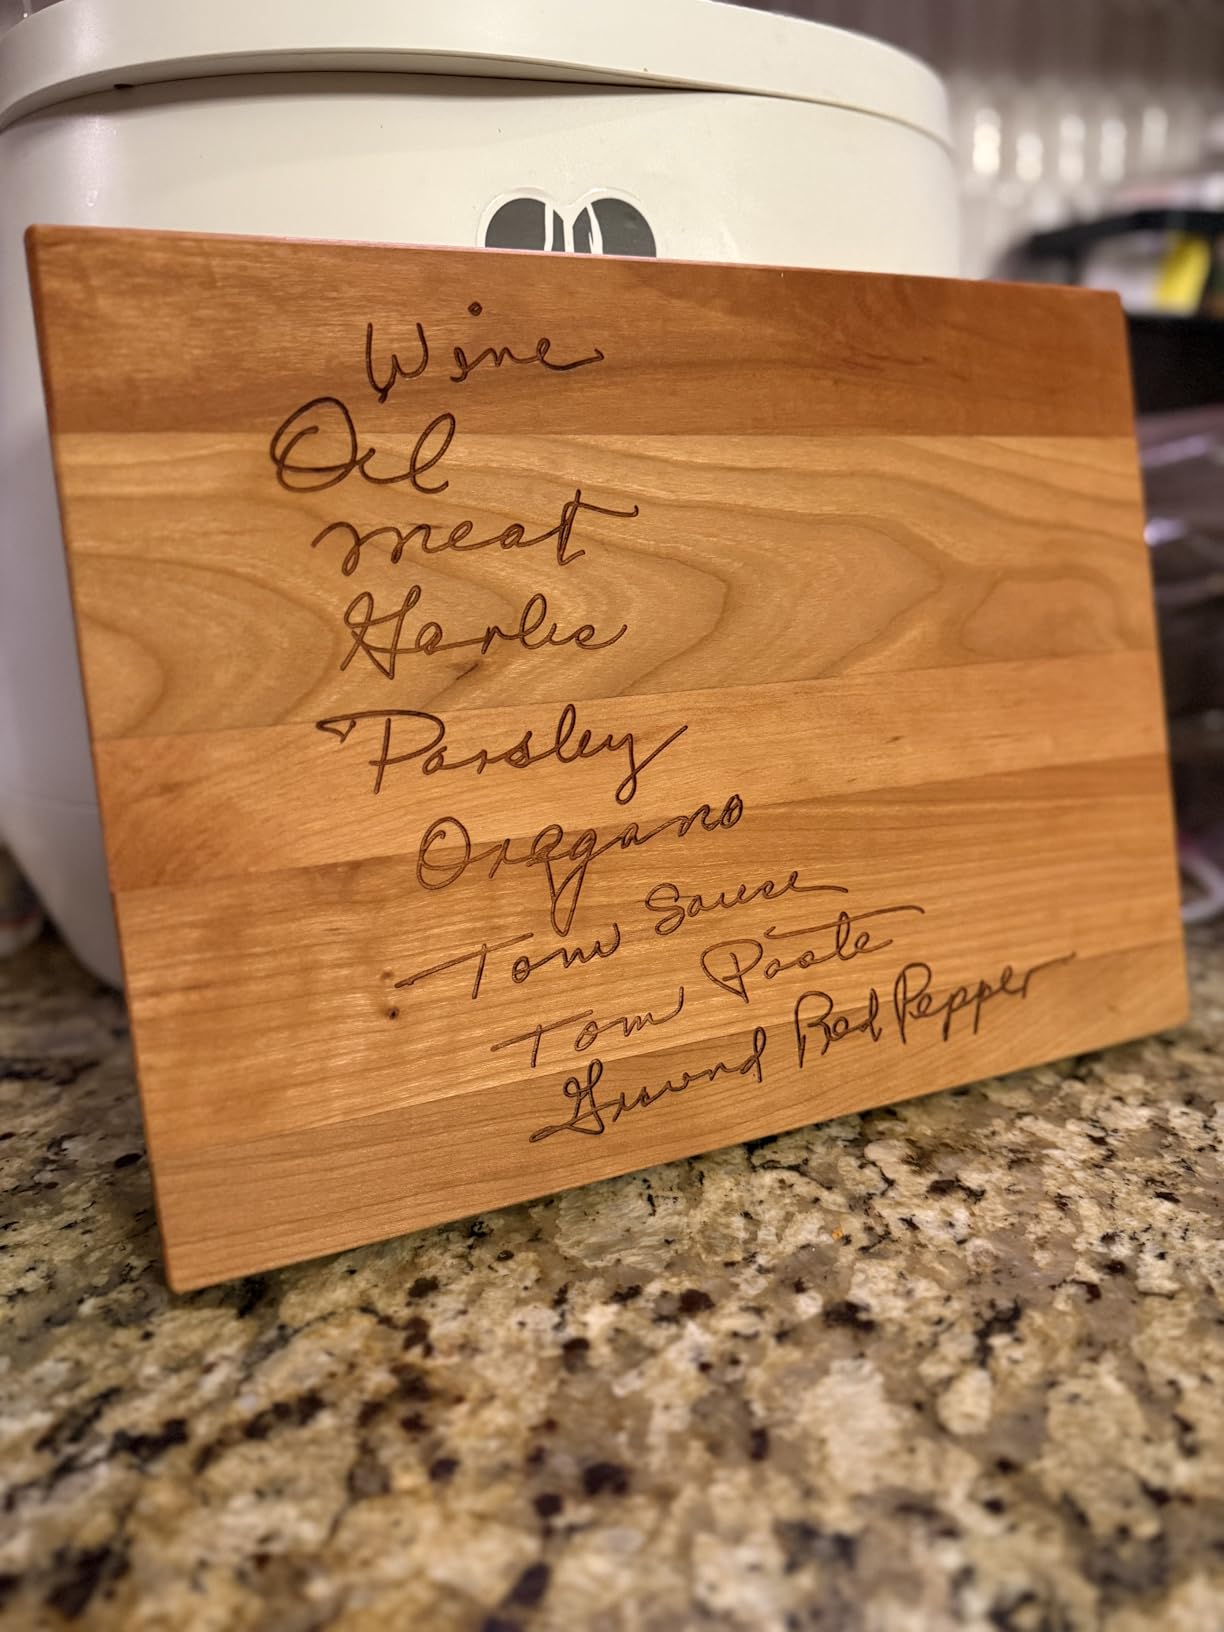 Wine
Oil
meat
Garlic
Parsley
Oregano
Tom Sauce
Tom Paste
Ground Red Pepper